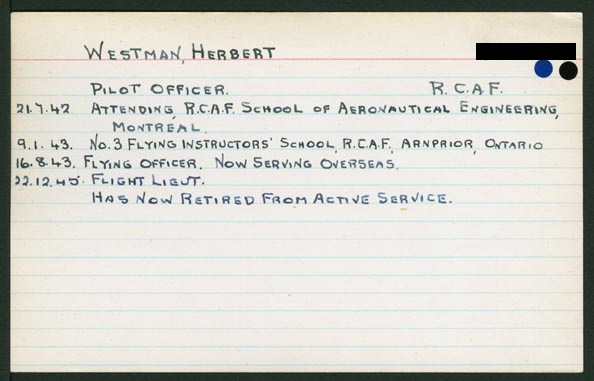 WESTMAN, HERBERT
PILOT OFFICER. R.C.A.F.
21.7.42 ATTENDING, R.C.A.F. SCHOOL OF AERONAUTICAL ENGINEERING,
MONTREAL.
9.1.43. NO.3 FLYING INSTRUCTORS' SCHOOL, R.C.A.F., ARNPRIOR, ONTARIO
16.8.43. FLYING OFFICER. NOW SERVING OVERSEAS.
22.12.45. FLIGHT LIEUT.
HAS NOW RETIRED FROM ACTIVE SERVICE.